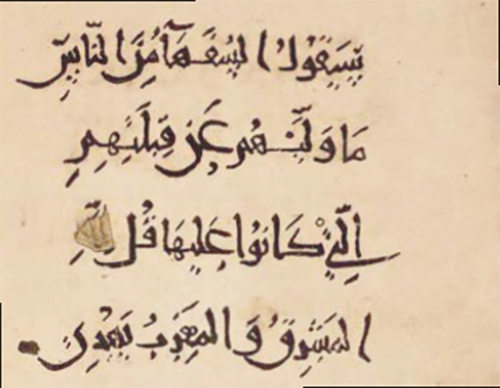 سيقول السفهآء من الناس
ما وليهم عن قبلتهم
التي كانوا عليها قل لله
المشرق والمغرب يهدي